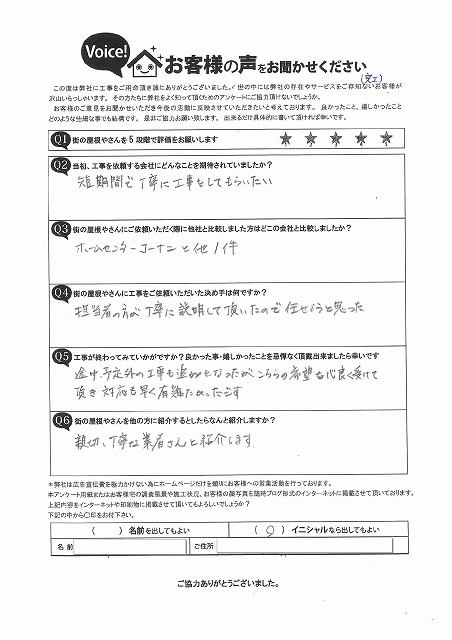 Voice! お客様の声をお聞かせください
(完工)
この度は弊社に工事をご用命頂き誠にありがとうございました。世の中には弊社の存在やサービスをご存知ないお客様が
沢山いらっしゃいます。その方たちに弊社をよく知って頂くためのアンケートにご協力頂けないでしょうか。
お客様のご意見をお聞かせいただき今後の活動に反映させていただきたいと考えております。良かったこと、嬉しかったこと
どのような些細な事でも結構です。是非ご協力お願い致します。出来るだけ具体的に書いて頂ければ幸いです。
Q1 街の屋根やさんを5段階で評価をお願いします ★ ★ ★ ★ ★
Q2 当初、工事を依頼する会社にどんなことを期待されていましたか?
短期間で丁寧に工事をしてもらいたい
Q3 街の屋根やさんにご依頼いただく際に他社と比較しました方はどこの会社と比較しましたか?
ホームセンターコーナンと他1件
Q4 街の屋根やさんに工事をご依頼いただいた決め手は何ですか?
担当者の方が丁寧に説明して頂いたので任せようと思った
Q5 工事が終わってみていかがですか?良かった事・嬉しかったことを忌憚なく頂戴出来ましたら幸いです
途中、予定外の工事も追加となったが、こちらの希望も心良く受けて
頂き対応も早く有難たかったです
Q6 街の屋根やさんを他の方に紹介するとしたらなんと紹介しますか?
親切、丁寧な業者さんと紹介します。
*弊社は広告宣伝費を極力かけない為にホームページだけを頼りにお客様への営業活動を行っております。
本アンケート用紙またはお客様宅の調査風景や施工状況、お客様の顔写真を随時ブログ形式のインターネットに掲載させて頂いております。
上記内容をインターネットや印刷物に掲載させて頂いてもよろしいでしょうか?
下記の中から○印をお付下さい。
( ) 名前を出してもよい ( ○ ) イニシャルなら出してもよい
名前 ご住所
ご協力ありがとうございました。